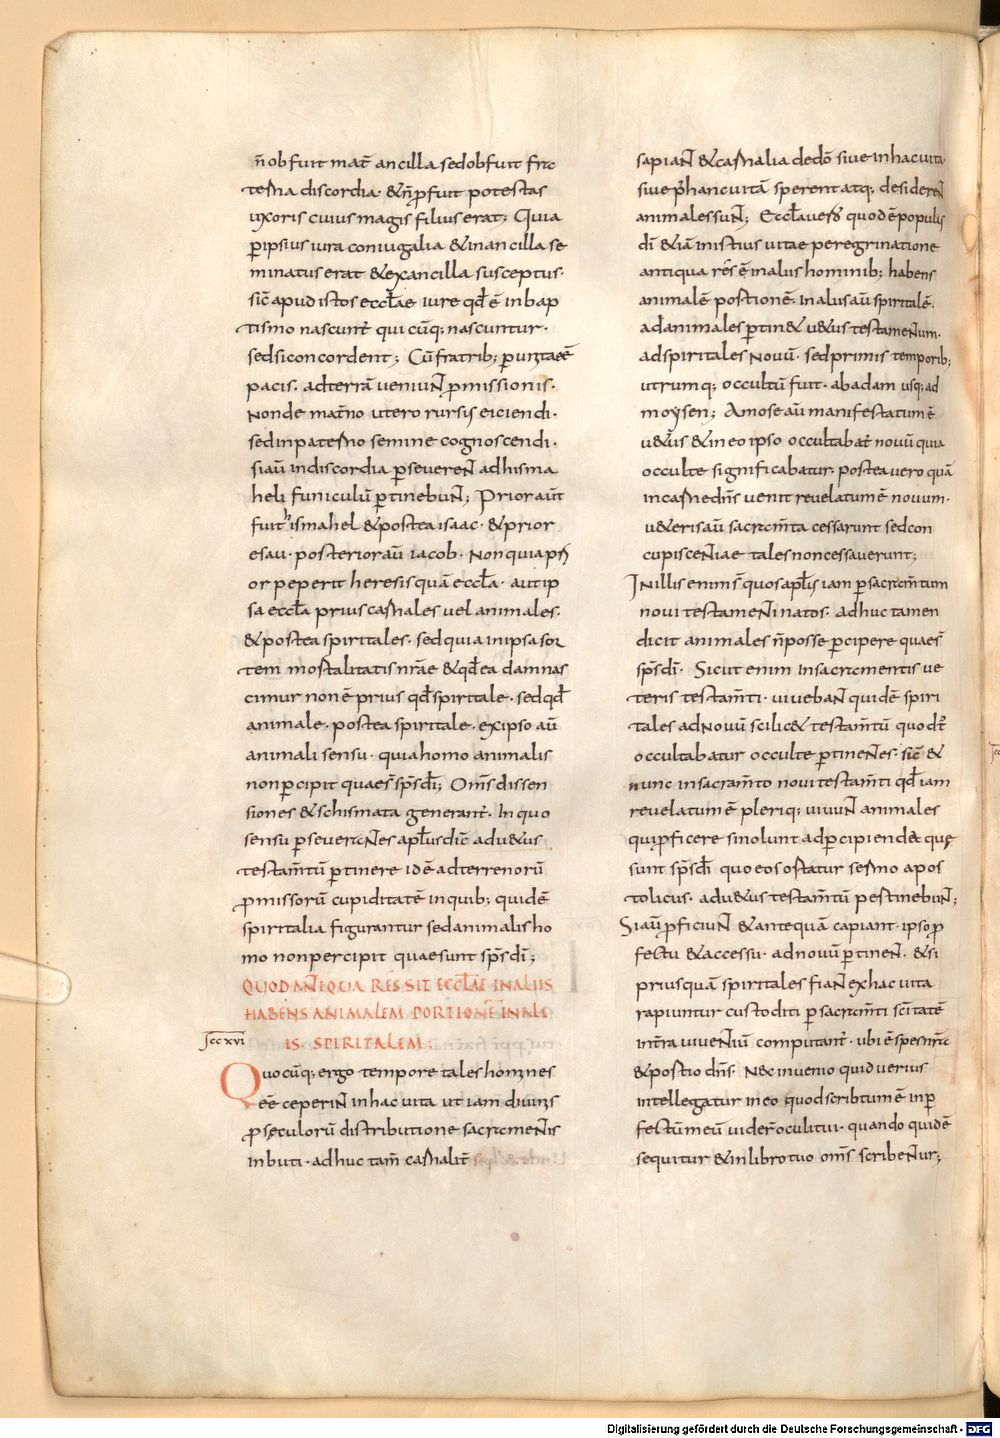 n̄ obfuit mat̄ ancilla sed obfuit frā
terna discordia· & n̄ p̄fuit potestas
uxoris cuius magis filius erat; Quia
p̱ ipsius iura coniugalia & in ancilla se
minatus erat & ex ancilla susceptus·
sic̄ apud istos eccłae iure qđ ē in bap
tismo nascunt̄ qui cūq; nascuntur·
sed si concordent; Cū fratrib;
pacis· ad terrā ueniunt p̱missionis·
Non de mat̄no utero rursis eiciendi·
sed in paterno semine cognoscendi·
si aū in discordia p̱seuerent ad hisma
heli funiculū p̱tinebunt; Prior aūt
fuit ismahel & postea isaac· & prior
esau· posterior aū iacob· Non quia pri
or peperit heresis quā eccła· aut ip
sa eccła prius carnales uel animales·
& postea spiritales· sed quia in ipsa sor
tem mortalitatis nr̄ae & qđ ea damnas
cimur non ē prius qđ spiritale· sed qđ
animale· postea spiritale· ex ipso aū
animali sensu· quia homo animalis
non p̱cipit quae s̄ sp̄s dī; Om̄s dissen
siones & schismata generant̄· In quo
sensu p̱seuerantes apłus dic̄ ad u&us
testam̄tū p̱tinere id ē ad terrenorū
p̱missorū cupiditatē in quib; quidē
spiritalia figurantur sed animalis ho
mo non percipit quae sunt sp̄s dī;
QUOD ANTIQUA RES SIT ECCŁAE IN ALIIS
HABENS ANIMALEM PORTIONĒ IN ALI
IS· SPIRITALEM;
ccxvi
Quo cūq; ergo tempore tales homines
eē ceperint in hac uita ut iam diuinis
p̱ sęculorū distributione sacramentis
inbuti· adhuc tam̄ carnalit̄
sapiant & carnalia de dō siue in hac uita·
siue p̄ hanc uitā sperent atq; desiderent
animales sunt; Eccła uero quod ē populus
dī & iā in istius uitae peregrinatione
antiqua rēs ē in aliis hominib; habens
animalē portionē· In aliis aū spiritalē·
ad animales p̱tin& u&us testamentum·
ad spiritales Nouū· sed primis temporib;
utrumq; occultū fuit· ab adam usq; ad
moysen; A mose aū manifestatum ē
u&us & in eo ipso occultabat̄ nouū quia
occulte significabatur· postea uero quā
in carne dn̄s uenit reuelatum ē nouum·
u&eris aū sacram̄ta cessarunt sed con
cupiscentiae tales non cessauerunt;
In illis enim s̄ quos apłs iam p̱ sacram̄tum
noui testamenti natos· adhuc tamen
dicit animales n̄ posse p̱cipere quae s̄
sp̄s dī· Sicut enim in sacramentis ue
teris testam̄ti· uiuebant quidē spiri
tales ad Nouū scilic& testam̄tū quod t̄
occultabatur occulte p̱tinentes· sic̄ &
nunc in sacram̄to noui testam̄ti qđ iam
reuelatum ē pleriq; uiuunt animales
qui p̱ficere si nolunt ad p̱cipienda quę
sunt sp̄s dī quo eos ortatur sermo apos
tolicus· ad u&us testam̄tū pertinebunt;
Si aū p̱ficiunt & antequā capiant· ipso p̱
fectu & accessu· ad nouū p̱tinent· & si
priusquā spiritales fiant ex hac uita
rapiuntur custoditi p̱ sacram̄ti sc̄itatē
in t̄ra uiuentiū computant̄· ubi ē spes nr̄a
& portio dn̄s· Nec inuenio quid uerius
intellegatur in eo quod scribtum ē inp̱
fectū meū uider̄ oculi tui· quando quidē
sequitur & in libro tuo om̄s scribentur;
Digitalisierung gefördert durch die Deutsche Forschungsgemeinschaft - DFG